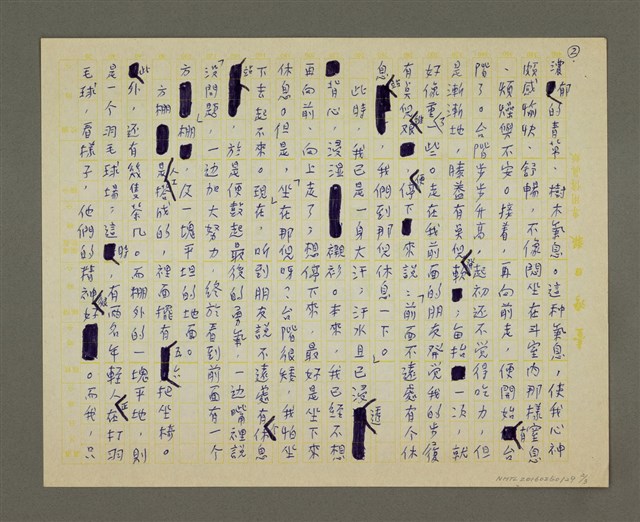 ②
濃郁的青草、樹木氣息。這种氣息，使我心神
頗感愉快、舒暢，不像悶坐在斗室內那樣窒息
、煩燥與不安。接着，再向前走，便開始有台
階了。台階步步升高，起初还不觉得吃力，但
是漸漸地，膝蓋有臭倪軟；每抬一次，就
好像重了一些。走在我前面的朋友發觉我的步履
有臭倪艰，便停下來說：「前面不遠處有个休
息站，我們到那倪休息一下。」
此時，我已是一身大汗；汗水且已浸透
背心，浸湿襯衫。本來，我已经不想
再向前、向上走了；想停下來，最好是坐下來
休息。但是，坐在那倪呀？台階很矮，我怕坐
下去起不來。現在，听到朋友說不遠處有个休息
站，於是便鼓起最後的勇氣，一边嘴裡說
「沒問題」，一边加大努力，終於看到前面有一个
方棚，及一塊平坦的地面。
方棚是人工搭成的，裡面擺有五、六把坐椅。
此外，还有幾隻茶几。而棚外的一塊平地，則
是一个羽毛球場；這時，有兩名年輕人正在打羽
毛球，看樣子，他們的精神很好。而我，只
NMTL20160260129 2/3